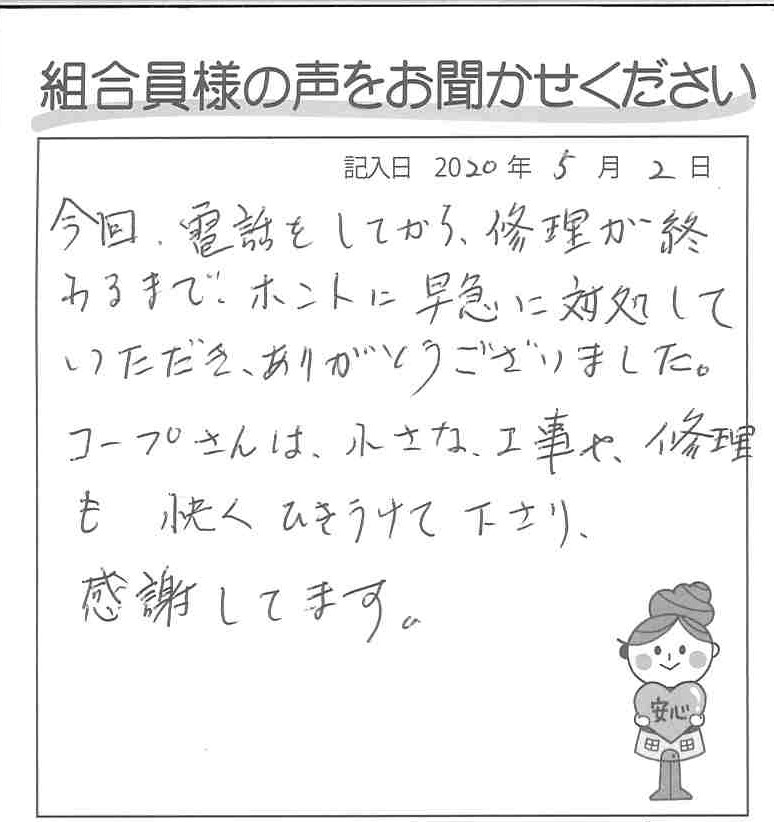 組合員様の声をお聞かせください
記入日 2020年 5月 2日
今回、電話をしてから、修理が終
わるまで、ホントに早急に対処して
いただき、ありがとうございました。
コープさんは、小さな、工事や、修理
も 快く ひきうけて 下さり、
感謝してます。
安心